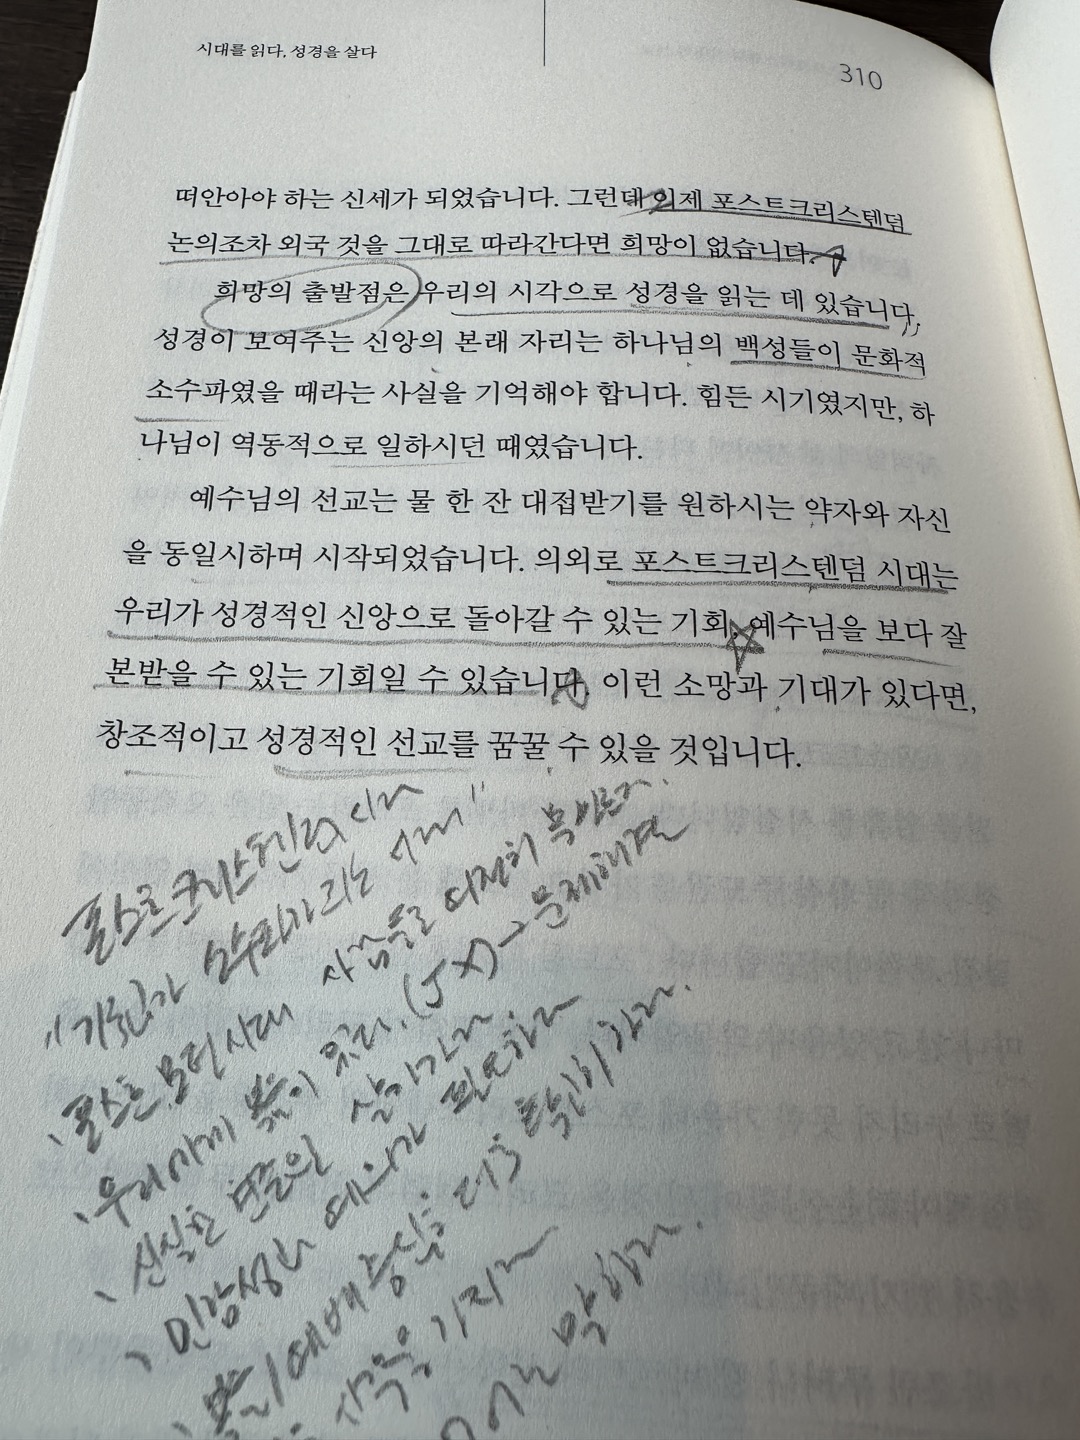 시대를 읽다, 성경을 살다
310
떠안아야 하는 신세가 되었습니다. 그런데 이제 포스트크리스텐덤
논의조차 외국 것을 그대로 따라간다면 희망이 없습니다.
희망의 출발점은 우리의 시각으로 성경을 읽는 데 있습니다.
성경이 보여주는 신앙의 본래 자리는 하나님의 백성들이 문화적
소수파였을 때라는 사실을 기억해야 합니다. 힘든 시기였지만, 하
나님이 역동적으로 일하시던 때였습니다.
예수님의 선교는 물 한 잔 대접받기를 원하시는 약자와 자신
을 동일시하며 시작되었습니다. 의외로 포스트크리스텐덤 시대는
우리가 성경적인 신앙으로 돌아갈 수 있는 기회, 예수님을 보다 잘
본받을 수 있는 기회일 수 있습니다. 이런 소망과 기대가 있다면,
창조적이고 성경적인 선교를 꿈꿀 수 있을 것입니다.
포스트크리스텐덤 시대
"기독교가 소수파가 되는 시대"
포스트모던시대 사람들로 여전히 목마르다.
우리에게 복음이 있다. (J X) → 문제해결
신실한 변증의 삶 살아가라
민감성과 예의가 필요하다
가지라